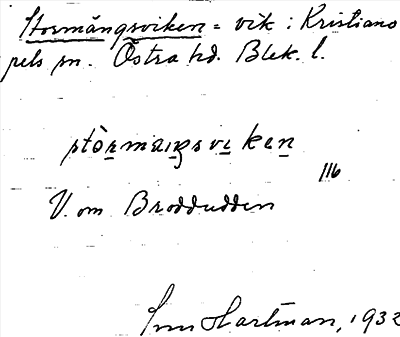 Stormångsviken = vik i Kristiano
pels sn. Östra hd. Blek. l.
stòrmaŋsviken
116
V. om Broddudden
Hartman, 1932